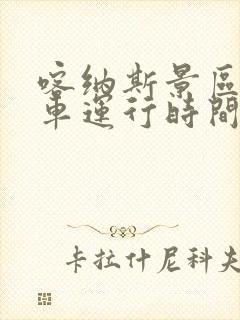 喀纳斯景區
車運行時間
卡拉什尼科夫